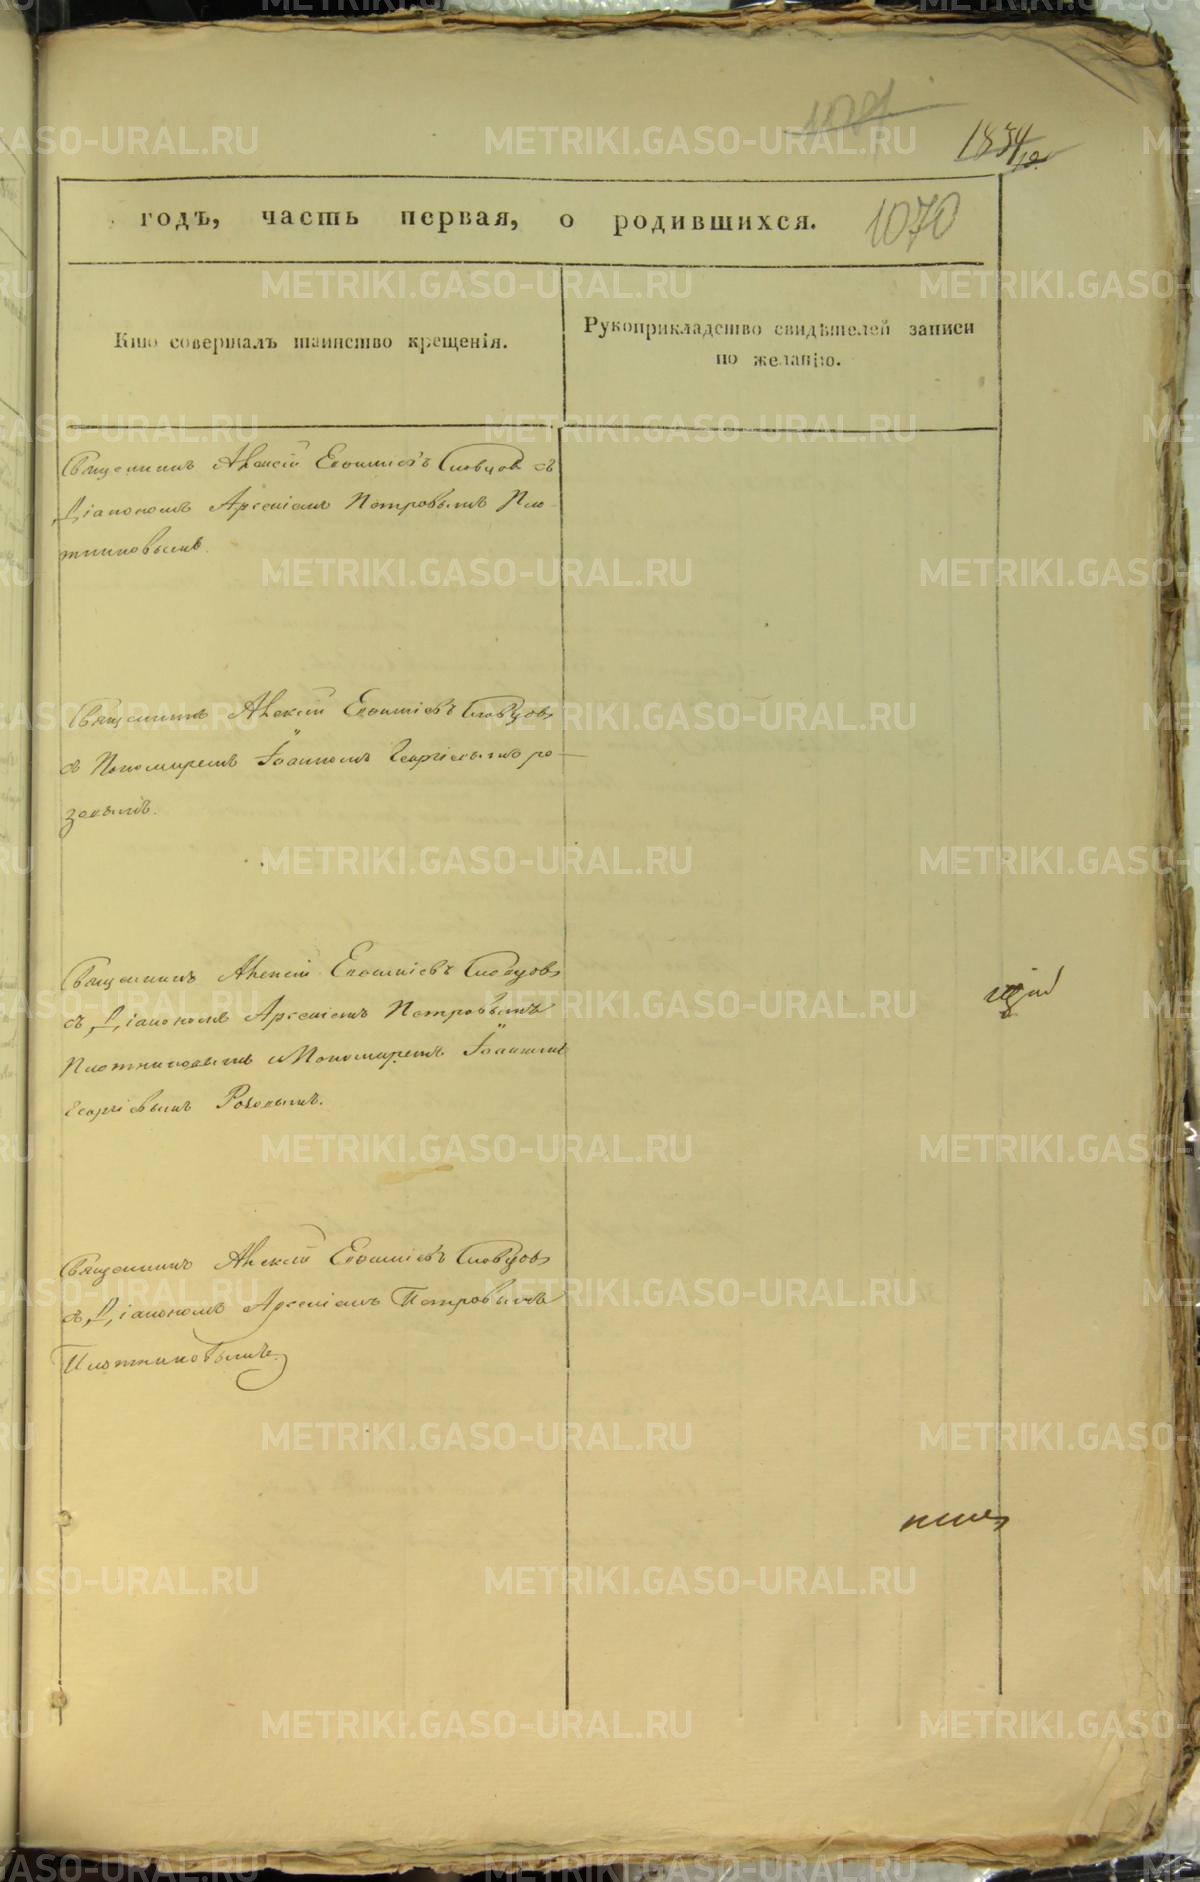 1070
годъ, часть первая, о родившихся.
Кто совершалъ таинство крещенія.
Рукоприкладство свидѣтелей записи
по желанію.
Священникъ Алексій Словцов съ
Діакономъ Арсеніемъ Петровымъ Пло-
тниковымъ.
Священникъ Алексій Словцовъ
съ Пономаремъ Іоанномъ Георгіевымъ Ро-
зовымъ.
Священникъ Алексій Словцовъ
съ Діакономъ Арсеніемъ Петровымъ
Плотниковымъ и Пономаремъ Іоанномъ
Георгіевымъ Розовымъ.
Священникъ Алексій Словцовъ
съ Діакономъ Арсеніемъ Петровымъ
Плотниковымъ.
METRIKI.GASO-URAL.RU